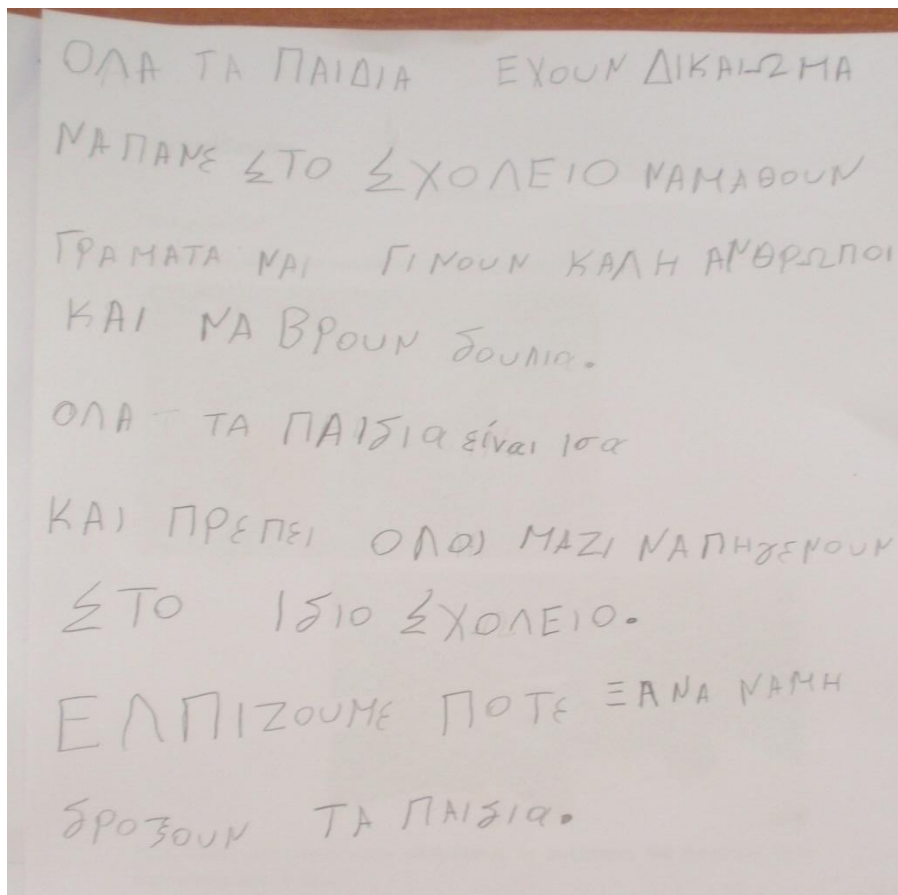 ΟΛΑ ΤΑ ΠΑΙΔΙΑ ΕΧΟΥΝ ΔΙΚΑΙΩΜΑ
ΝΑ ΠΑΝΕ ΣΤΟ ΣΧΟΛΕΙΟ ΝΑΜΑΘΟΥΝ
ΓΡΑΜΑΤΑ ΝΑΙ ΓΙΝΟΥΝ ΚΑΛΗ ΑΝΘΡΩΠΟΙ
ΚΑΙ ΝΑ ΒΡΟΥΝ δουλια.
ΟΛΑ ΤΑ ΠΑΙδια είναι ισα
ΚΑΙ ΠΡΕΠΕΙ ΟΛΟΙ ΜΑΖΙ ΝΑΠΗγΕΝΟΥΝ
ΣΤΟ ΙδΙΟ ΣΧΟΛΕΙΟ.
ΕΛΠΙΖΟΥΜΕ ΠΟΤΕ ΞΑΝΑ ΝΑΜΗ
δΡΟξΟΥΝ ΤΑ ΠΑΙδια.